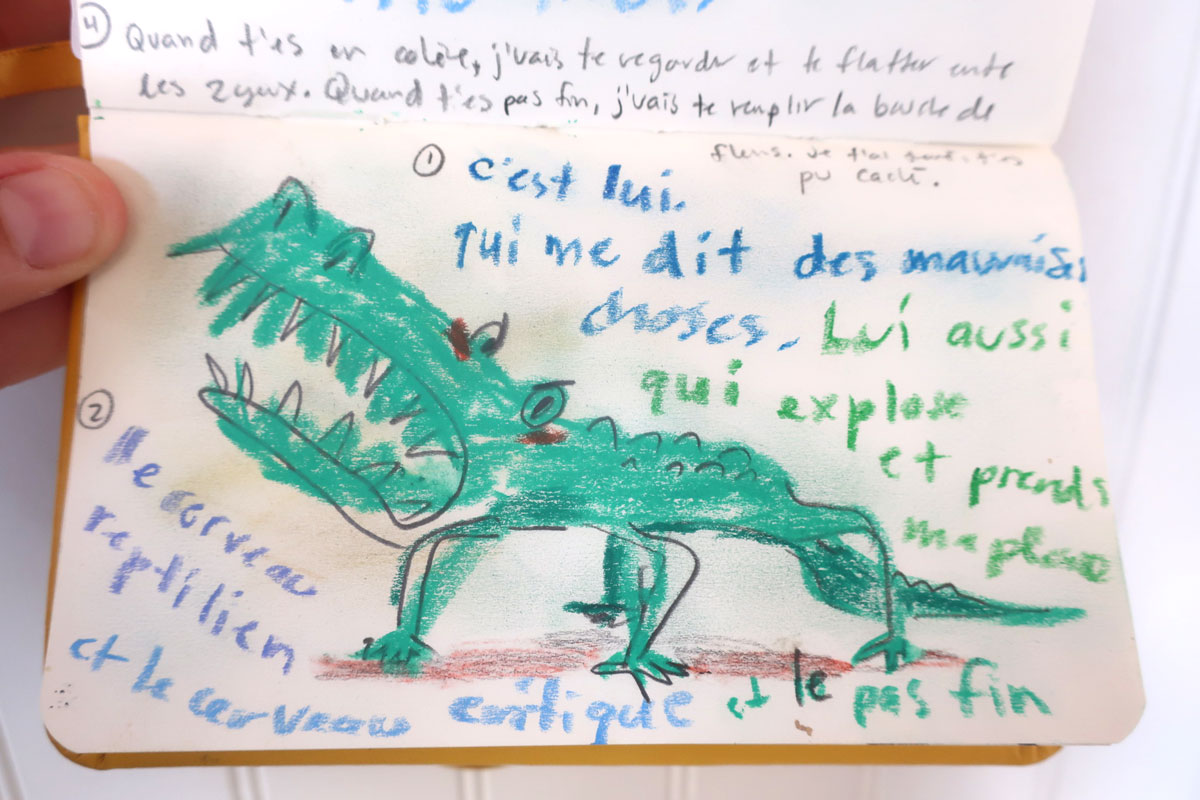 ④ Quand t'es en colère, j'vais te regarder et te flatter entre
les zyeux. Quand t'es pas fin, j'vais te remplir la bouche de
fleurs. Je t'ai
pu caché.
① c'est lui.
qui me dit des mauvaises
choses. Lui aussi
qui explose
et prends
ma place
②
le cerveau
reptilien
et le cerveau critique et le pas fin